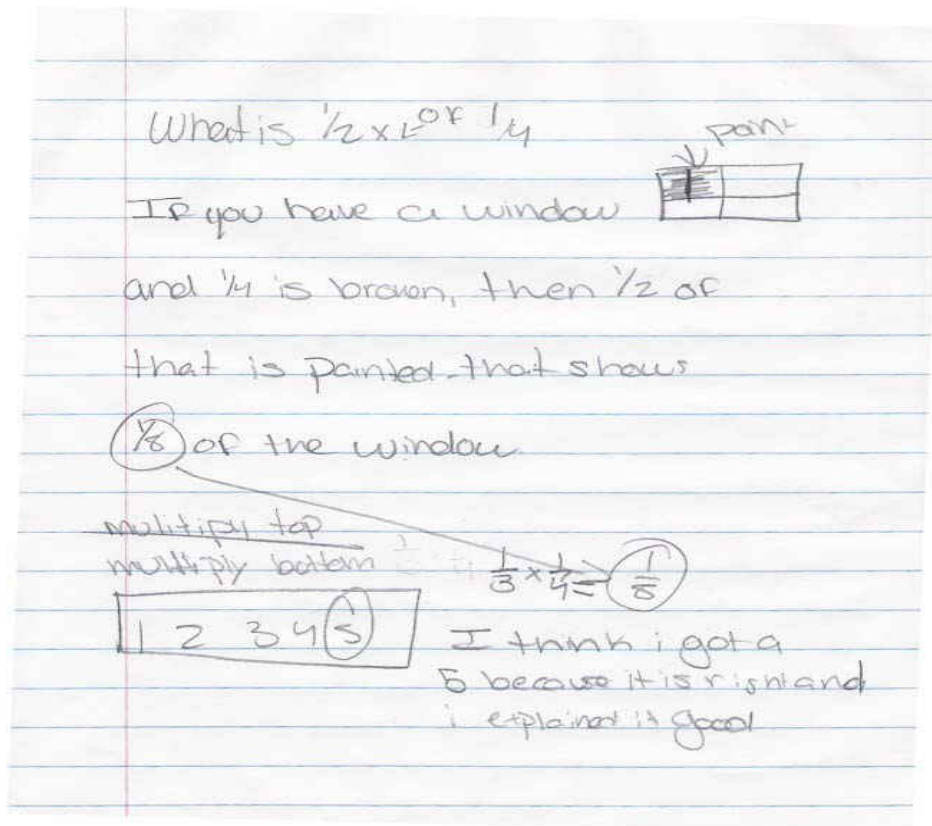 What is 1/2 x of 1/4
pain
If you have a window
and 1/4 is brown, then 1/2 of
that is painted. that shows
1/8 of the window
mulitipy top
multiply bottom
1/3 x 1/4 = 1/8
1 2 3 4 5
I think i got a
5 because it is right and
i explained it good